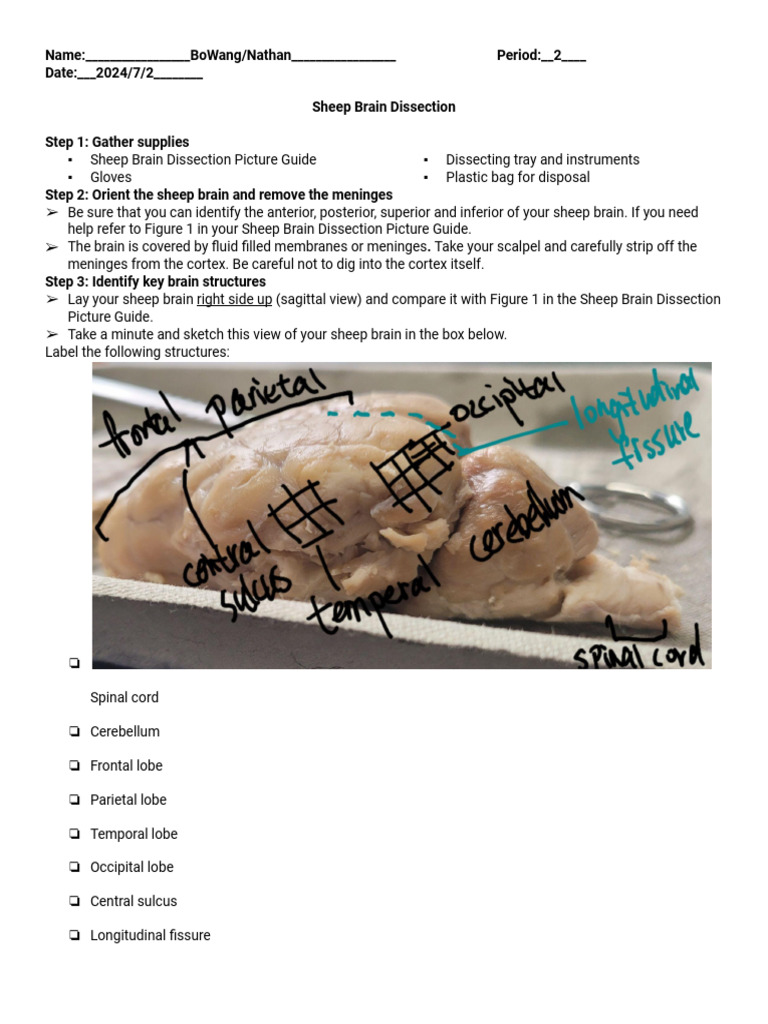 Name:_________________BoWang/Nathan_________________ Period:__2____
Date:___2024/7/2________
Sheep Brain Dissection
Step 1: Gather supplies
▪ Sheep Brain Dissection Picture Guide
▪ Gloves
▪ Dissecting tray and instruments
▪ Plastic bag for disposal
Step 2: Orient the sheep brain and remove the meninges
➢ Be sure that you can identify the anterior, posterior, superior and inferior of your sheep brain. If you need
help refer to Figure 1 in your Sheep Brain Dissection Picture Guide.
➢ The brain is covered by fluid filled membranes or meninges. Take your scalpel and carefully strip off the
meninges from the cortex. Be careful not to dig into the cortex itself.
Step 3: Identify key brain structures
➢ Lay your sheep brain right side up (sagittal view) and compare it with Figure 1 in the Sheep Brain Dissection
Picture Guide.
➢ Take a minute and sketch this view of your sheep brain in the box below.
Label the following structures:
frontal
parietal
occipital
longitudinal
fissure
central
sulcus
temperal
cerebellum
spinal cord
❏
Spinal cord
❏ Cerebellum
❏ Frontal lobe
❏ Parietal lobe
❏ Temporal lobe
❏ Occipital lobe
❏ Central sulcus
❏ Longitudinal fissure